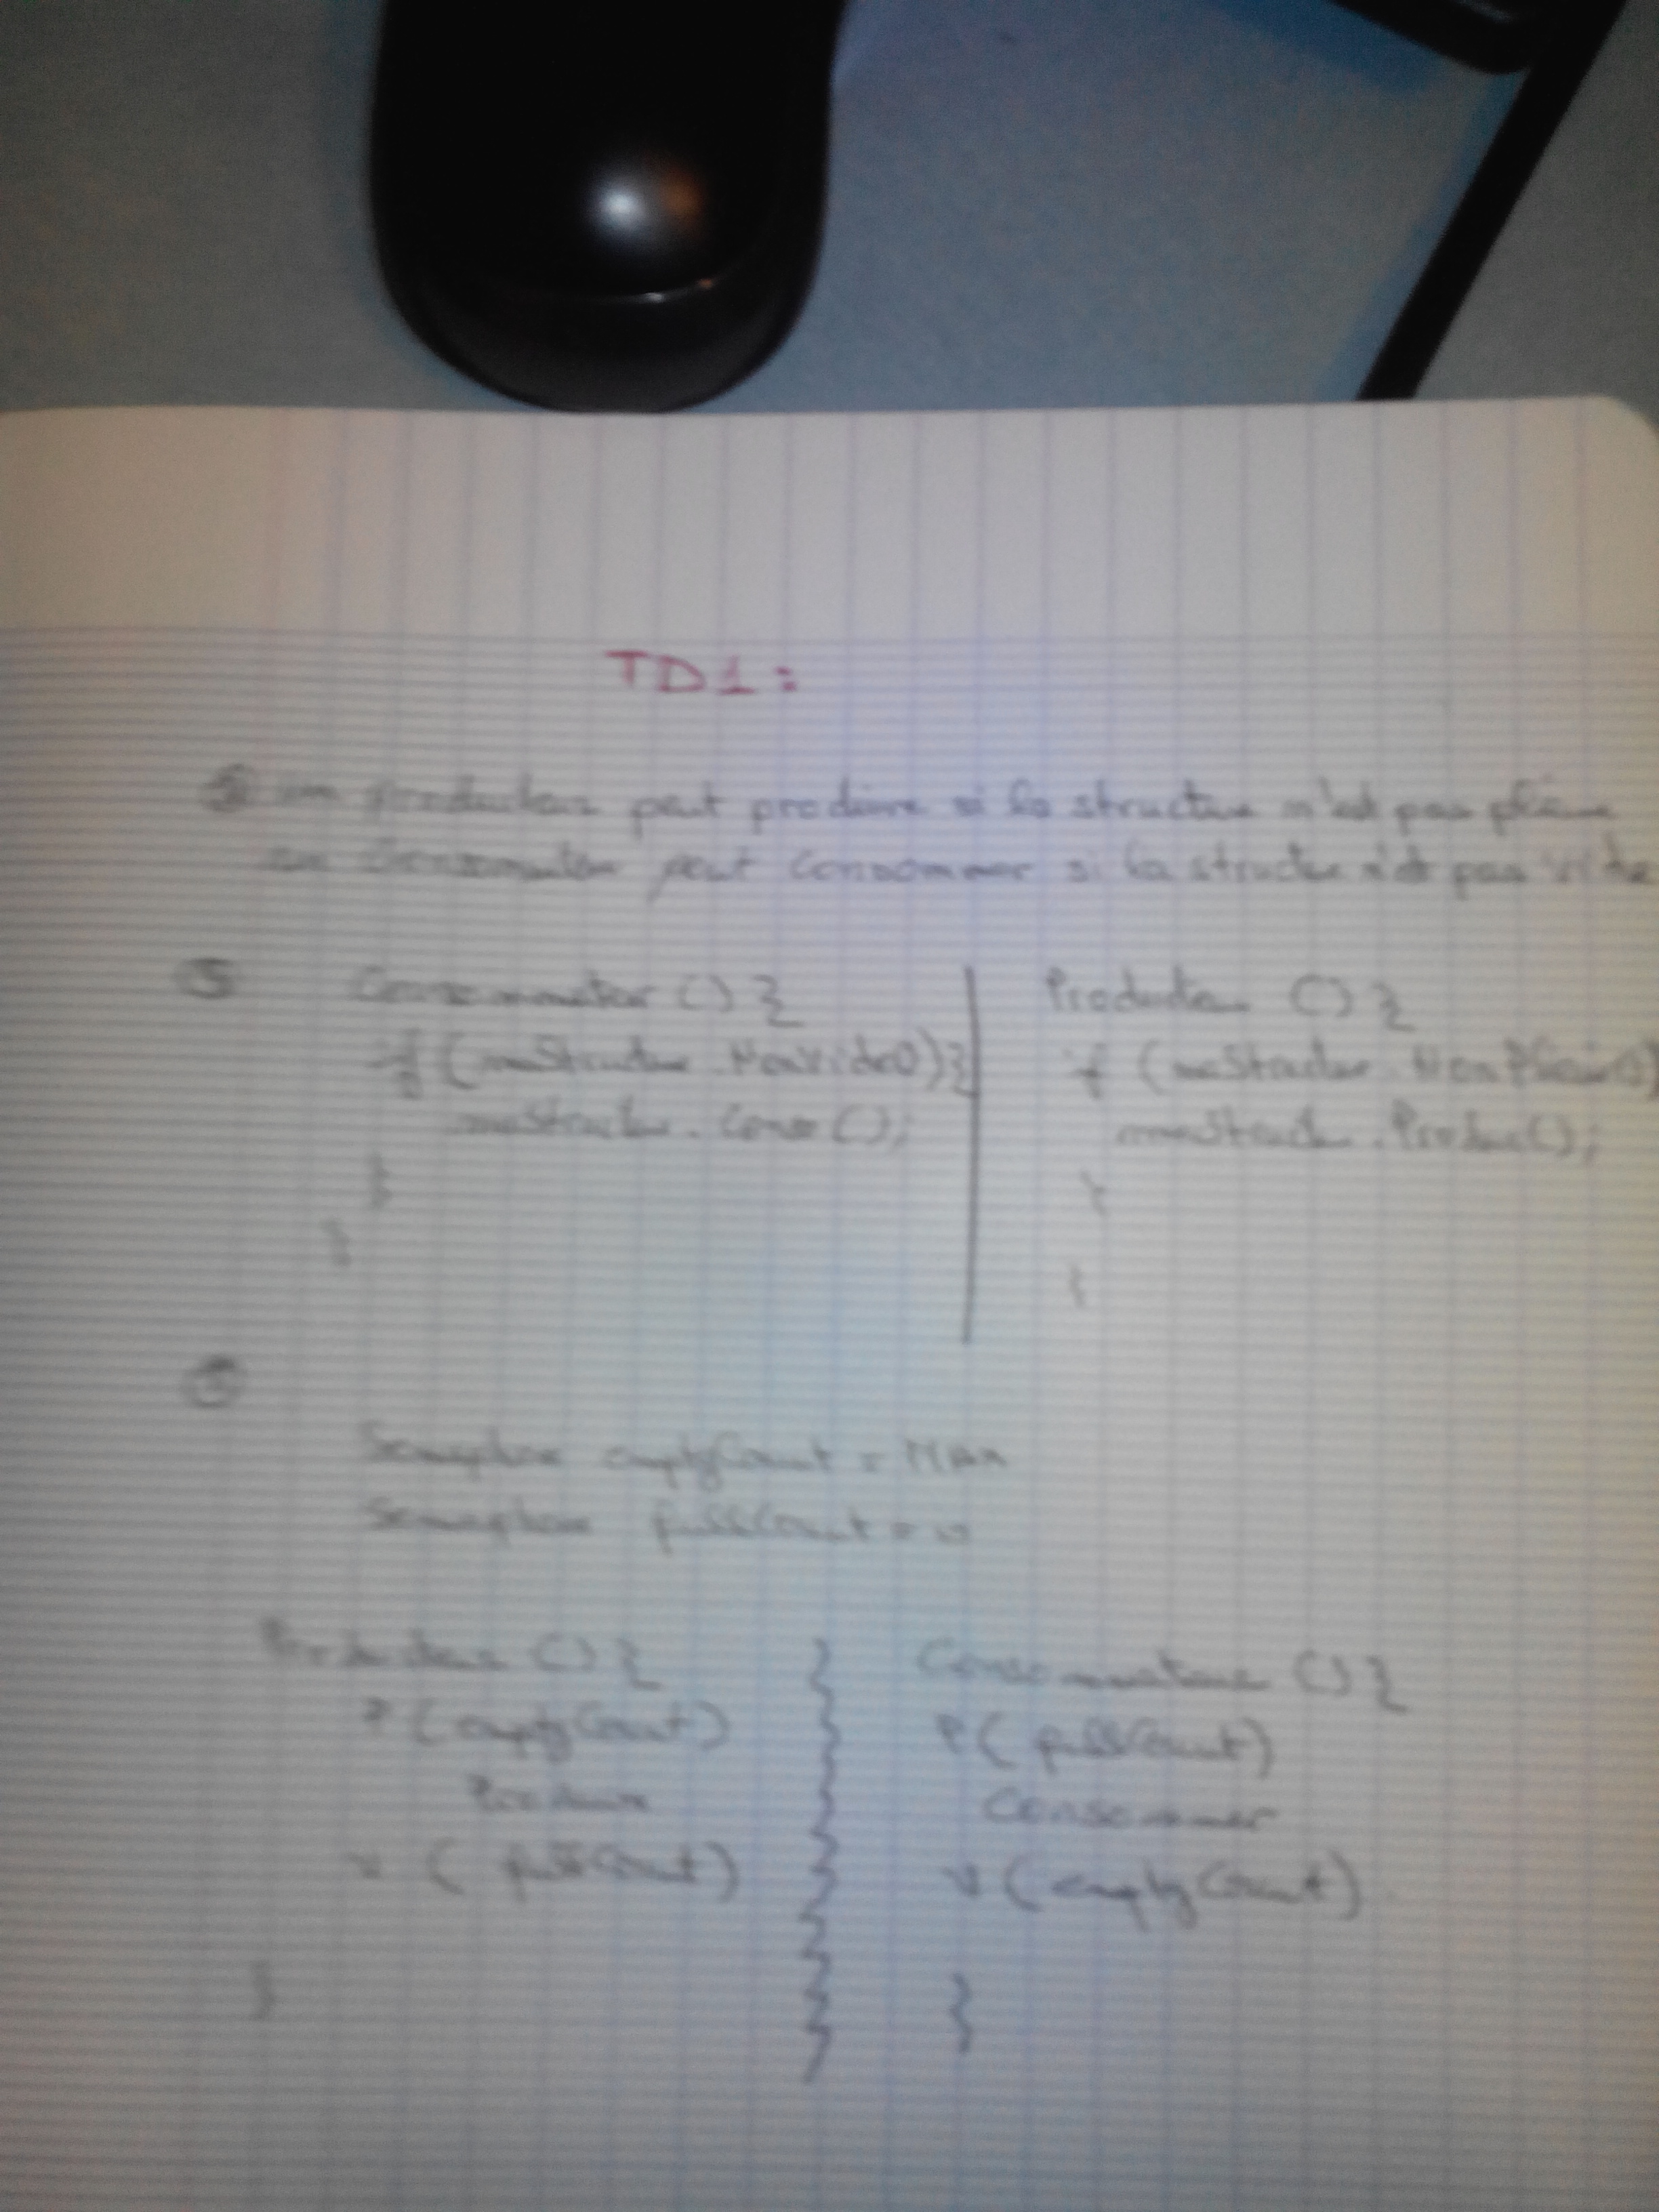 TD1 :
un producteur peut produire si la structure n'est pas pleine
un consommateur peut consommer si la structure n'est pas vide
Consommateur () {
if (maStructure.NonVide()) {
maStructure.Cons();
}
}
Producteur () {
if (maStructure.NonPleine()
maStructure.Produc();
}
}
Semaphore emptyCount = MAX
Semaphore fullCount = 0
Producteur () {
P (emptyCount)
Produire
V (fullCount)
}
Consommateur () {
P (fullCount)
Consommer
V (emptyCount)
}